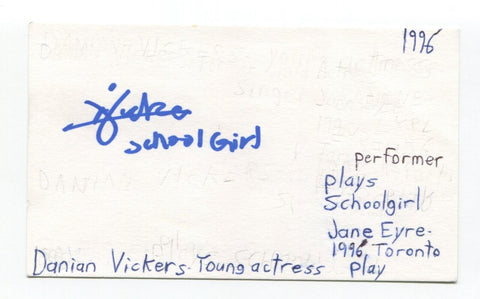 1996
school Girl
performer
plays
Schoolgirl
Jane Eyre.
1996 Toronto
play
Danian Vickers. Young actress